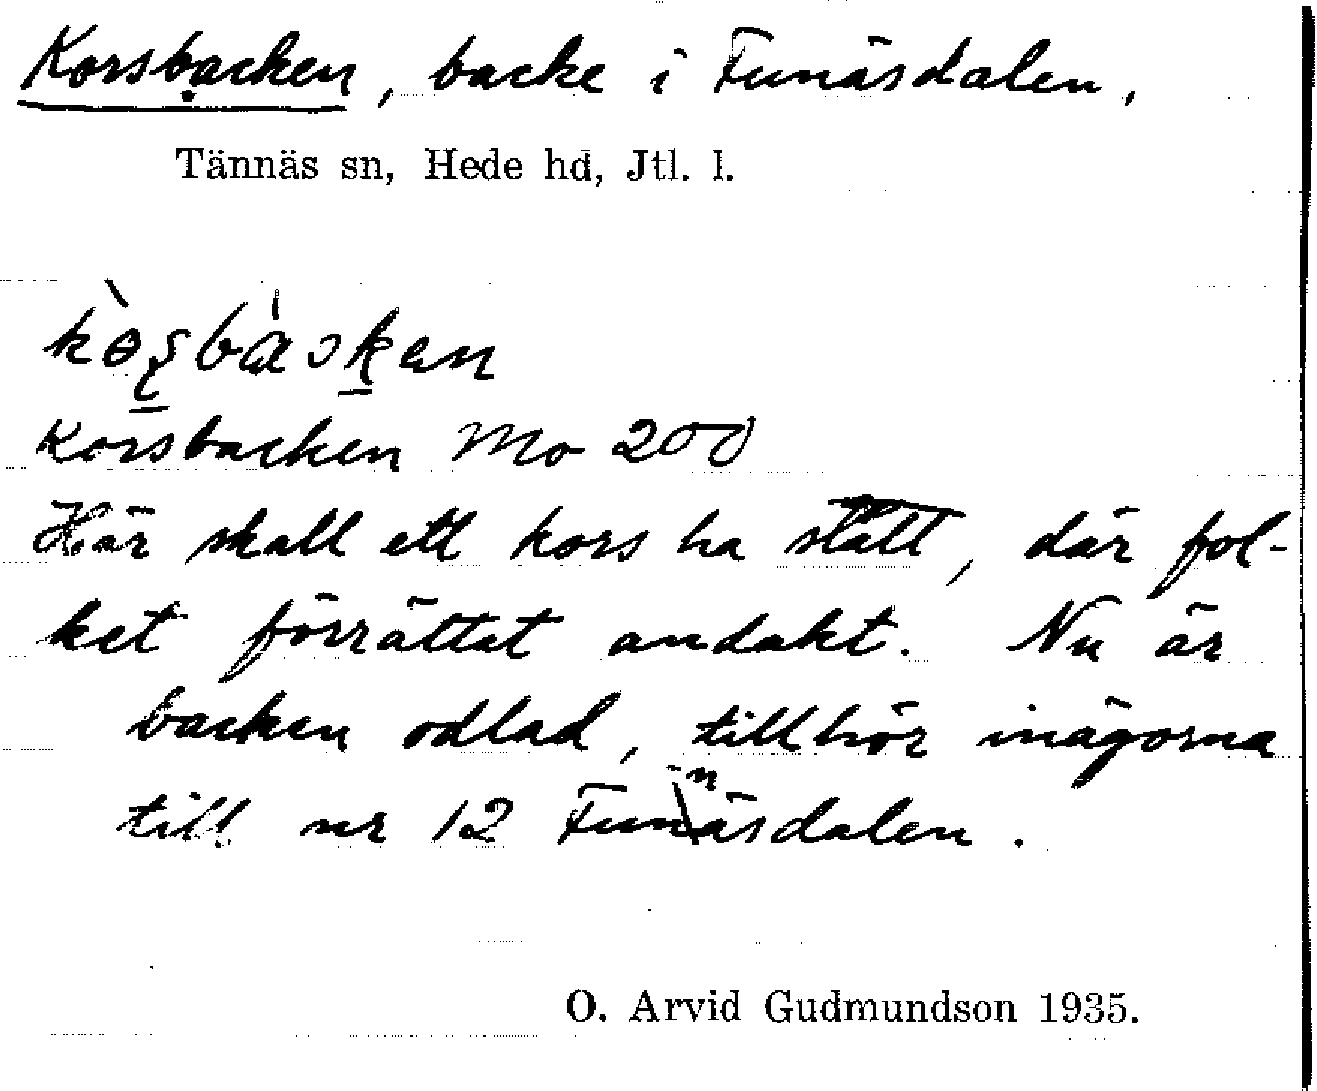 Korsbacken, backe i Funäsdalen.
Tännäs sn, Hede hd, Jtl. l.
Korsbacken Mo 200
Här skall ett kors ha stått, där fol-
ket förrättat andakt. Nu är
backen odlad, tillhör inägorna
till nr 12 Funnäsdalen.
O. Arvid Gudmundson 1935.